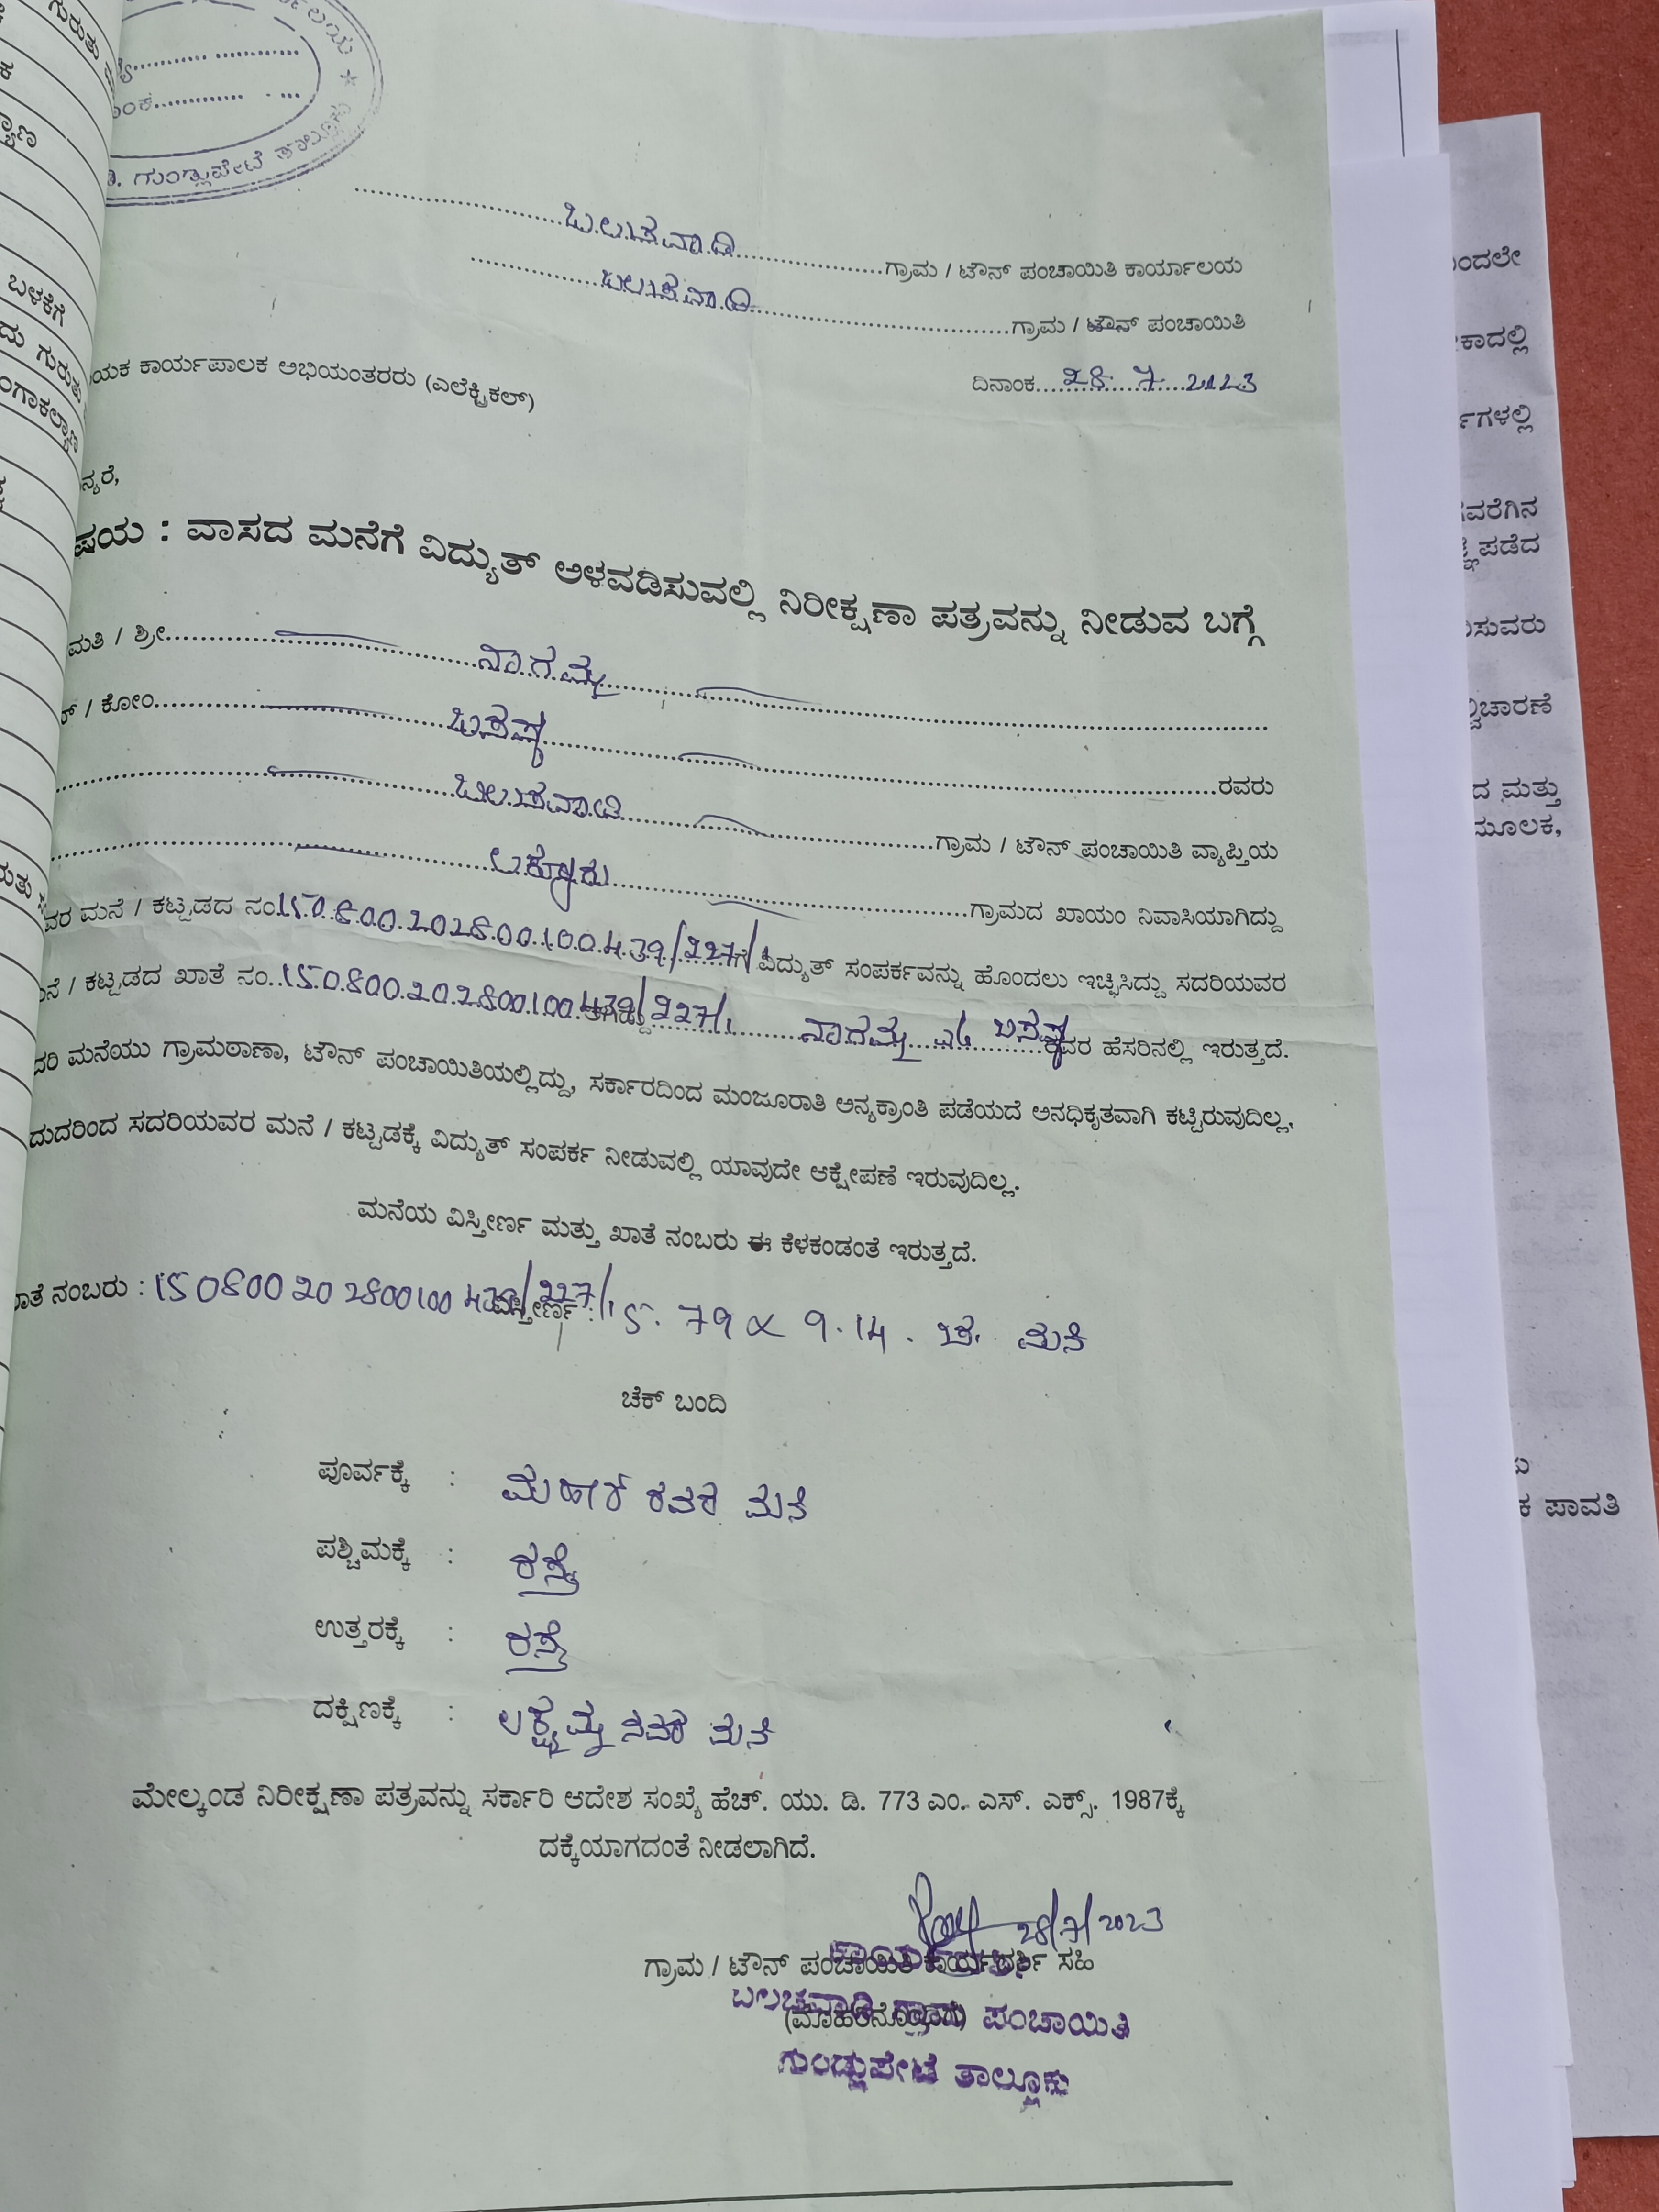 ಗುಂಡ್ಲುಪೇಟೆ ತಾಲ್ಲೂಕು
ಬಲಚವಾಡಿ ಗ್ರಾಮ / ಟೌನ್ ಪಂಚಾಯಿತಿ ಕಾರ್ಯಾಲಯ
ಬಲಚವಾಡಿ ಗ್ರಾಮ / ಟೌನ್ ಪಂಚಾಯಿತಿ
ಯಕ ಕಾರ್ಯಪಾಲಕ ಅಭಿಯಂತರರು (ಎಲೆಕ್ಟ್ರಿಕಲ್)
ದಿನಾಂಕ 28 7 2023
ನ್ಯರೆ,
ಷಯ : ವಾಸದ ಮನೆಗೆ ವಿದ್ಯುತ್ ಅಳವಡಿಸುವಲ್ಲಿ ನಿರೀಕ್ಷಣಾ ಪತ್ರವನ್ನು ನೀಡುವ ಬಗ್ಗೆ
ಮತಿ / ಶ್ರೀ ನಾಗಮ್ಮ
/ ಕೋಂ ಬಸಪ್ಪ ರವರು
ಬಲಚವಾಡಿ ಗ್ರಾಮ / ಟೌನ್ ಪಂಚಾಯಿತಿ ವ್ಯಾಪ್ತಿಯ
ಲಕ್ಕೂರು ಗ್ರಾಮದ ಖಾಯಂ ನಿವಾಸಿಯಾಗಿದ್ದು
ವರ ಮನೆ / ಕಟ್ಟಡದ ನಂ. 150800202800100439/227/1 ಗೆ ವಿದ್ಯುತ್ ಸಂಪರ್ಕವನ್ನು ಹೊಂದಲು ಇಚ್ಛಿಸಿದ್ದು ಸದರಿಯವರ
ನೆ / ಕಟ್ಟಡದ ಖಾತೆ ನಂ. 150800202800100439/227/1 ಆಗಿದ್ದು ನಾಗಮ್ಮ ಬಸಪ್ಪ ರವರ ಹೆಸರಿನಲ್ಲಿ ಇರುತ್ತದೆ.
ದರಿ ಮನೆಯು ಗ್ರಾಮಠಾಣಾ, ಟೌನ್ ಪಂಚಾಯಿತಿಯಲ್ಲಿದ್ದು, ಸರ್ಕಾರದಿಂದ ಮಂಜೂರಾತಿ ಅನ್ಯಕ್ರಾಂತಿ ಪಡೆಯದೆ ಅನಧಿಕೃತವಾಗಿ ಕಟ್ಟಿರುವುದಿಲ್ಲ,
ದುದರಿಂದ ಸದರಿಯವರ ಮನೆ / ಕಟ್ಟಡಕ್ಕೆ ವಿದ್ಯುತ್ ಸಂಪರ್ಕ ನೀಡುವಲ್ಲಿ ಯಾವುದೇ ಆಕ್ಷೇಪಣೆ ಇರುವುದಿಲ್ಲ.
ಮನೆಯ ವಿಸ್ತೀರ್ಣ ಮತ್ತು ಖಾತೆ ನಂಬರು ಈ ಕೆಳಕಂಡಂತೆ ಇರುತ್ತದೆ.
ಾತೆ ನಂಬರು : 150800202800100439/227/1 ವಿಸ್ತೀರ್ಣ : 15.79 x 9.14. ಚ. ಮನೆ
ಚೆಕ್ ಬಂದಿ
ಪೂರ್ವಕ್ಕೆ : ರವರ ಮನೆ
ಪಶ್ಚಿಮಕ್ಕೆ : ರಸ್ತೆ
ಉತ್ತರಕ್ಕೆ : ರಸ್ತೆ
ದಕ್ಷಿಣಕ್ಕೆ : ಲಕ್ಷ್ಮಮ್ಮ ನವರ ಮನೆ
ಮೇಲ್ಕಂಡ ನಿರೀಕ್ಷಣಾ ಪತ್ರವನ್ನು ಸರ್ಕಾರಿ ಆದೇಶ ಸಂಖ್ಯೆ ಹೆಚ್. ಯು. ಡಿ. 773 ಎಂ. ಎಸ್. ಎಕ್ಸ್. 1987ಕ್ಕೆ
ದಕ್ಕೆಯಾಗದಂತೆ ನೀಡಲಾಗಿದೆ.
28/7/2023
ಗ್ರಾಮ / ಟೌನ್ ಪಂಚಾಯಿತಿ ಕಾರ್ಯದರ್ಶಿ ಸಹಿ
(ಮೊಹರಿನೊಂದಿಗೆ)
ಬಲಚವಾಡಿ ಗ್ರಾಮ ಪಂಚಾಯಿತಿ
ಗುಂಡ್ಲುಪೇಟೆ ತಾಲ್ಲೂಕು
ಬಳಕೆಗೆ
ದು ಗುರುತು
ಂದಲೇ
ಕಾದಲ್ಲಿ
ಗಳಲ್ಲಿ
ವರೆಗಿನ
ಪಡೆದ
ಸುವರು
ಚಾರಣೆ
ದ ಮತ್ತು
ಮೂಲಕ,
ಕ ಪಾವತಿ